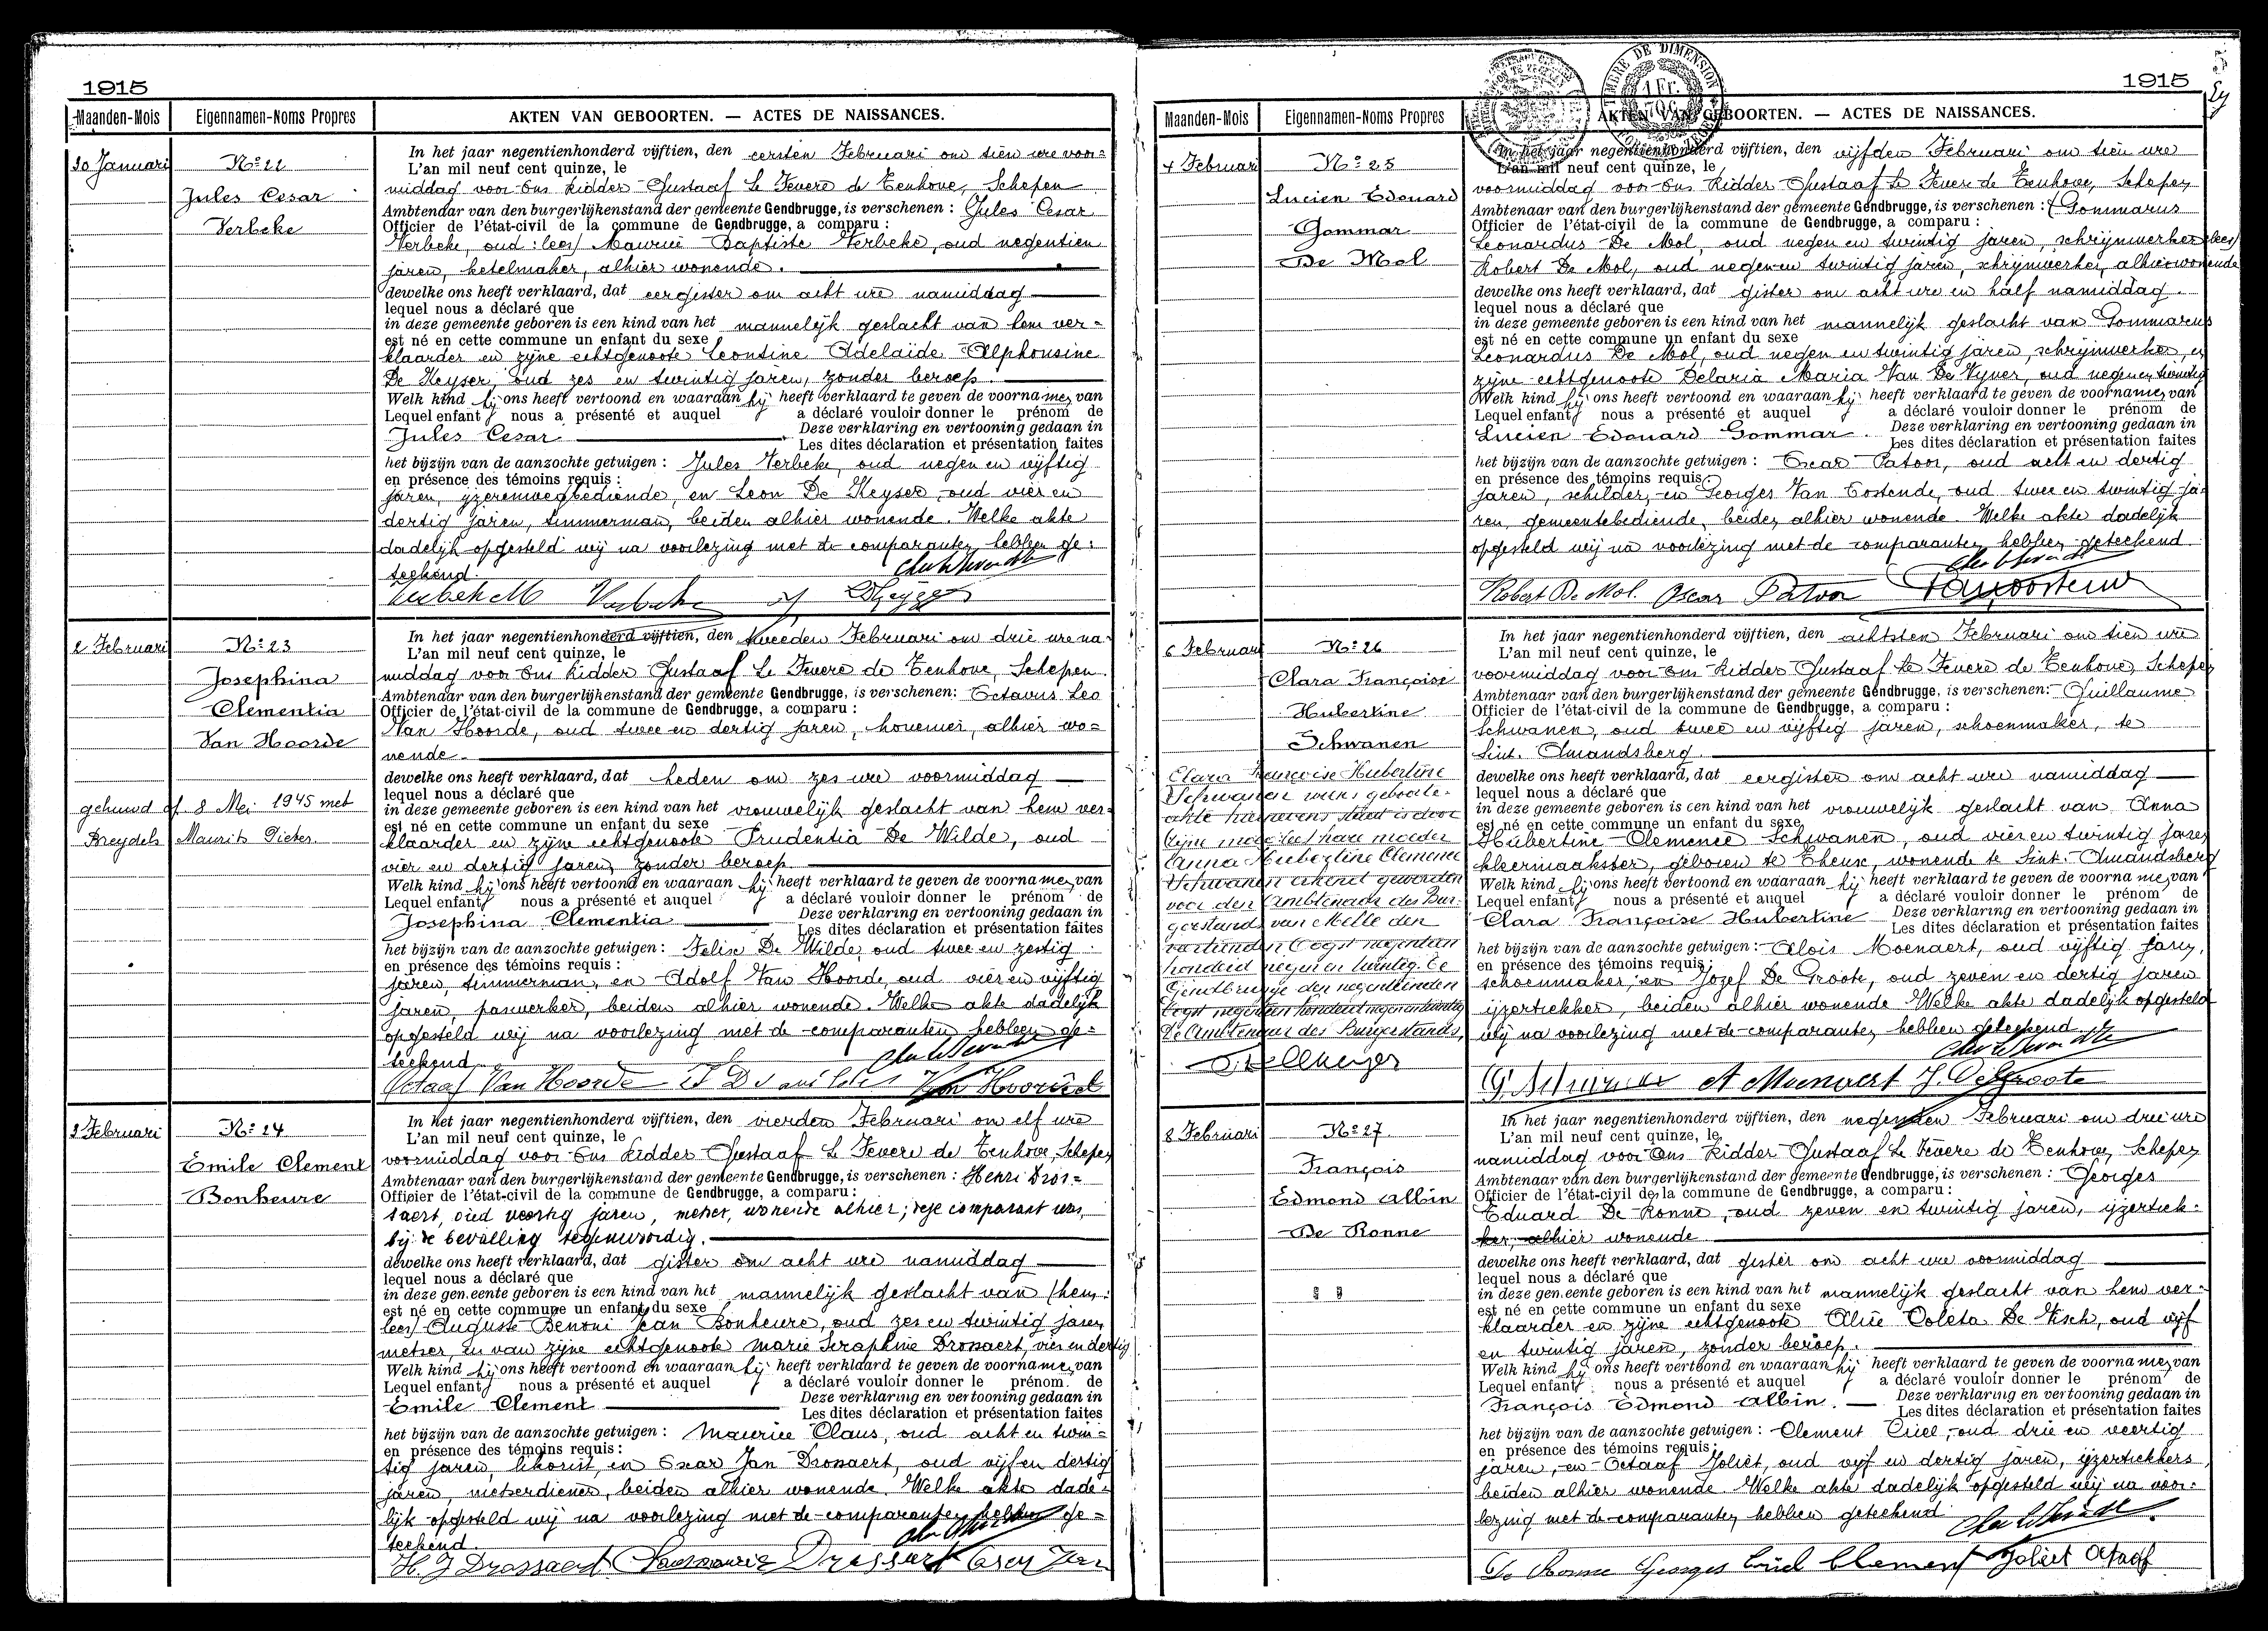 1915
Maanden-Mois
Eigennamen-Noms Propres
AKTEN VAN GEBOORTEN. — ACTES DE NAISSANCES.
30 Januari
No 22
Jules Cesar
Verbeke
In het jaar negentienhonderd vijftien, den eersten Februari om tien ure voor=
L'an mil neuf cent quinze, le
middag voor Ons Ridder Gustaaf Le Fevere de Tenhove, Schepen
Ambtenaar van den burgerlijkenstand der gemeente Gendbrugge, is verschenen : Jules Cesar
Officier de l'état-civil de la commune de Gendbrugge, a comparu :
Verbeke, oud (lees) Maurice Baptiste Verbeke, oud negentien
jaren, ketelmaker, alhier wonende.
dewelke ons heeft verklaard, dat eergister om acht ure namiddag
lequel nous a déclaré que
in deze gemeente geboren is een kind van het mannelijk geslacht van hem ver=
est né en cette commune un enfant du sexe
klaarder en zijne echtgenoote Leontine Adelaide Alphonsine
De Keyser, oud zes en twintig jaren, zonder beroep.
Welk kind hij ons heeft vertoond en waaraan hij heeft verklaard te geven de voornamen van
Lequel enfant nous a présenté et auquel a déclaré vouloir donner le prénom de
Jules Cesar. Deze verklaring en vertooning gedaan in
Les dites déclaration et présentation faites
het bijzijn van de aanzochte getuigen : Jules Verbeke, oud negen en vijftig
en présence des témoins requis :
jaren, ijzerenwegbediende, en Leon De Keyser, oud vier en
dertig jaren, timmerman, beiden alhier wonende. Welke akte
dadelijk opgesteld wij na voorlezing met de comparanten hebben ge=
teekend.
2 Februari
No 23
Josephina
Clementia
Van Hoorde
gehuwd of 8 Mei 1945 met
Breydels Maurits Pieter.
In het jaar negentienhonderd vijftien, den tweeden Februari om drie ure na=
L'an mil neuf cent quinze, le
middag voor Ons Ridder Gustaaf Le Fevere de Tenhove, Schepen
Ambtenaar van den burgerlijkenstand der gemeente Gendbrugge, is verschenen: Octavus Leo
Officier de l'état-civil de la commune de Gendbrugge, a comparu :
Van Hoorde, oud twee en dertig jaren, hovenier, alhier wo=
nende.
dewelke ons heeft verklaard, dat heden om zes ure voormiddag
lequel nous a déclaré que
in deze gemeente geboren is een kind van het vrouwelijk geslacht van hem ver=
est né en cette commune un enfant du sexe
klaarder en zijne echtgenoote Prudentia De Wilde, oud
vier en dertig jaren, zonder beroep
Welk kind hij ons heeft vertoond en waaraan hij heeft verklaard te geven de voornamen van
Lequel enfant nous a présenté et auquel a déclaré vouloir donner le prénom de
Josephina Clementia Deze verklaring en vertooning gedaan in
Les dites déclaration et présentation faites
het bijzijn van de aanzochte getuigen : Felix De Wilde, oud twee en zestig
en présence des témoins requis :
jaren, timmerman, en Adolf Van Hoorde, oud vier en vijftig
jaren, paswerker, beiden alhier wonende. Welke akte dadelijk
opgesteld wij na voorlezing met de comparanten hebben ge=
teekend
Octaaf Van Hoorde
3 Februari
No 24
Emile Clement
Bonheure
In het jaar negentienhonderd vijftien, den vierden Februari om elf ure
L'an mil neuf cent quinze, le
voormiddag voor Ons Ridder Gustaaf Le Fevere de Tenhove, Schepen
Ambtenaar van den burgerlijkenstand der gemeente Gendbrugge, is verschenen : Henri Dros=
Officier de l'état-civil de la commune de Gendbrugge, a comparu :
saert, oud veertig jaren, metser, wonende alhier; deze comparant was
bij de bevalling tegenwoordig.
dewelke ons heeft verklaard, dat gister om acht ure namiddag
lequel nous a déclaré que
in deze gemeente geboren is een kind van het mannelijk geslacht van (hem
est né en cette commune un enfant du sexe
lees) Auguste Benoni Jean Bonheure, oud zes en twintig jaren
metser, en van zijne echtgenoote Marie Seraphine Drossaert, vier en dertig
Welk kind hij ons heeft vertoond en waaraan hij heeft verklaard te geven de voornamen van
Lequel enfant nous a présenté et auquel a déclaré vouloir donner le prénom de
Emile Clement Deze verklaring en vertooning gedaan in
Les dites déclaration et présentation faites
het bijzijn van de aanzochte getuigen : Maurice Claus, oud acht en twin=
en présence des témoins requis :
tig jaren, likorist, en Oscar Jan Drossaert, oud vijf en dertig
jaren, metserdiener, beiden alhier wonende. Welke akte dade=
lijk opgesteld wij na voorlezing met de comparanten hebben ge=
teekend.
H. J Drossaert
1915
Maanden-Mois
Eigennamen-Noms Propres
AKTEN VAN GEBOORTEN. — ACTES DE NAISSANCES.
4 Februari
No 25
Lucien Edouard
Gommar
De Mol
In het jaar negentienhonderd vijftien, den vijfden Februari om tien ure
L'an mil neuf cent quinze, le
voormiddag voor Ons Ridder Gustaaf Le Fevere de Tenhove, Schepen
Ambtenaar van den burgerlijkenstand der gemeente Gendbrugge, is verschenen : (Gommarus
Officier de l'état-civil de la commune de Gendbrugge, a comparu :
Leonardus De Mol, oud negen en twintig jaren, schrijnwerker lees)
Robert De Mol, oud negen en twintig jaren, schrijnwerker, alhier wonende
dewelke ons heeft verklaard, dat gister om acht ure en half namiddag.
lequel nous a déclaré que
in deze gemeente geboren is een kind van het mannelijk geslacht van Gommarus
est né en cette commune un enfant du sexe
Leonardus De Mol, oud negen en twintig jaren, schrijnwerker, en
zijne echtgenoote Delaria Maria Van De Vyver, oud negen en twintig
Welk kind hij ons heeft vertoond en waaraan hij heeft verklaard te geven de voornamen van
Lequel enfant nous a présenté et auquel a déclaré vouloir donner le prénom de
Lucien Edouard Gommar. Deze verklaring en vertooning gedaan in
Les dites déclaration et présentation faites
het bijzijn van de aanzochte getuigen : Oscar Patoor, oud acht en dertig
en présence des témoins requis :
jaren, schilder, en Georges Van Oostende, oud twee en twintig ja=
ren, gemeentebediende, beiden alhier wonende. Welke akte dadelijk
opgesteld wij na voorlezing met de comparanten hebben geteekend.
Robert De Mol. Oscar Patoor
6 Februari
No 26
Clara Françoise
Hubertine
Schwanen
Clara Françoise Hubertine
Schwanen wiens geboorte-
Anna Hubertine Clemence
Schwanen erkend geworden
voor den Ambtenaar des Bur-
gerstands van Melle den
Oogst negentien
honderd negen en twintig.
Gendbrugge den negentienden
Oogst negentien honderd negen en twintig
De Ambtenaar des Burgerstands,
In het jaar negentienhonderd vijftien, den achtsten Februari om tien ure
L'an mil neuf cent quinze, le
voormiddag voor Ons Ridder Gustaaf Le Fevere de Tenhove, Schepen
Ambtenaar van den burgerlijkenstand der gemeente Gendbrugge, is verschenen: Guillaume
Officier de l'état-civil de la commune de Gendbrugge, a comparu :
Schwanen, oud twee en vijftig jaren, schoenmaker, te
Sint. Amandsberg.
dewelke ons heeft verklaard, dat eergister om acht ure namiddag
lequel nous a déclaré que
in deze gemeente geboren is een kind van het vrouwelijk geslacht van Anna
est né en cette commune un enfant du sexe
Hubertine Clemence Schwanen, oud vier en twintig jaren
kleermaakster, geboren te Theux, wonende te Sint. Amandsberg
Welk kind hij ons heeft vertoond en waaraan hij heeft verklaard te geven de voornamen van
Lequel enfant nous a présenté et auquel a déclaré vouloir donner le prénom de
Clara Françoise Hubertine Deze verklaring en vertooning gedaan in
Les dites déclaration et présentation faites
het bijzijn van de aanzochte getuigen : Alois Moenaert, oud vijftig jaren,
en présence des témoins requis :
schoenmaker, en Jozef De Groote, oud zeven en dertig jaren
ijzertrekker, beiden alhier wonende. Welke akte dadelijk opgesteld
wij na voorlezing met de comparanten hebben geteekend.
A Moenaert J. De Groote
8 Februari
No 27
François
Edmond Albin
De Ronne
In het jaar negentienhonderd vijftien, den negenden Februari om drie ure
L'an mil neuf cent quinze, le
namiddag voor Ons Ridder Gustaaf Le Fevere de Tenhove, Schepen
Ambtenaar van den burgerlijkenstand der gemeente Gendbrugge, is verschenen : Georges
Officier de l'état-civil de la commune de Gendbrugge, a comparu :
Eduard De Ronne, oud zeven en twintig jaren, ijzertrek=
ker, alhier wonende
dewelke ons heeft verklaard, dat gister om acht ure voormiddag
lequel nous a déclaré que
in deze gemeente geboren is een kind van het mannelijk geslacht van hem ver=
est né en cette commune un enfant du sexe
klaarder en zijne echtgenoote Alice Coleta De Visch, oud vijf
en twintig jaren, zonder beroep.
Welk kind hij ons heeft vertoond en waaraan hij heeft verklaard te geven de voornamen van
Lequel enfant nous a présenté et auquel a déclaré vouloir donner le prénom de
François Edmond Albin. Deze verklaring en vertooning gedaan in
Les dites déclaration et présentation faites
het bijzijn van de aanzochte getuigen : Clement Criel, oud drie en veertig
en présence des témoins requis :
jaren, en Octaaf Joliet, oud vijf en dertig jaren, ijzertrekkers
beiden alhier wonende. Welke akte dadelijk opgesteld wij na voor=
lezing met de comparanten hebben geteekend
De Ronne Georges Criel Clement Joliet Octaaf